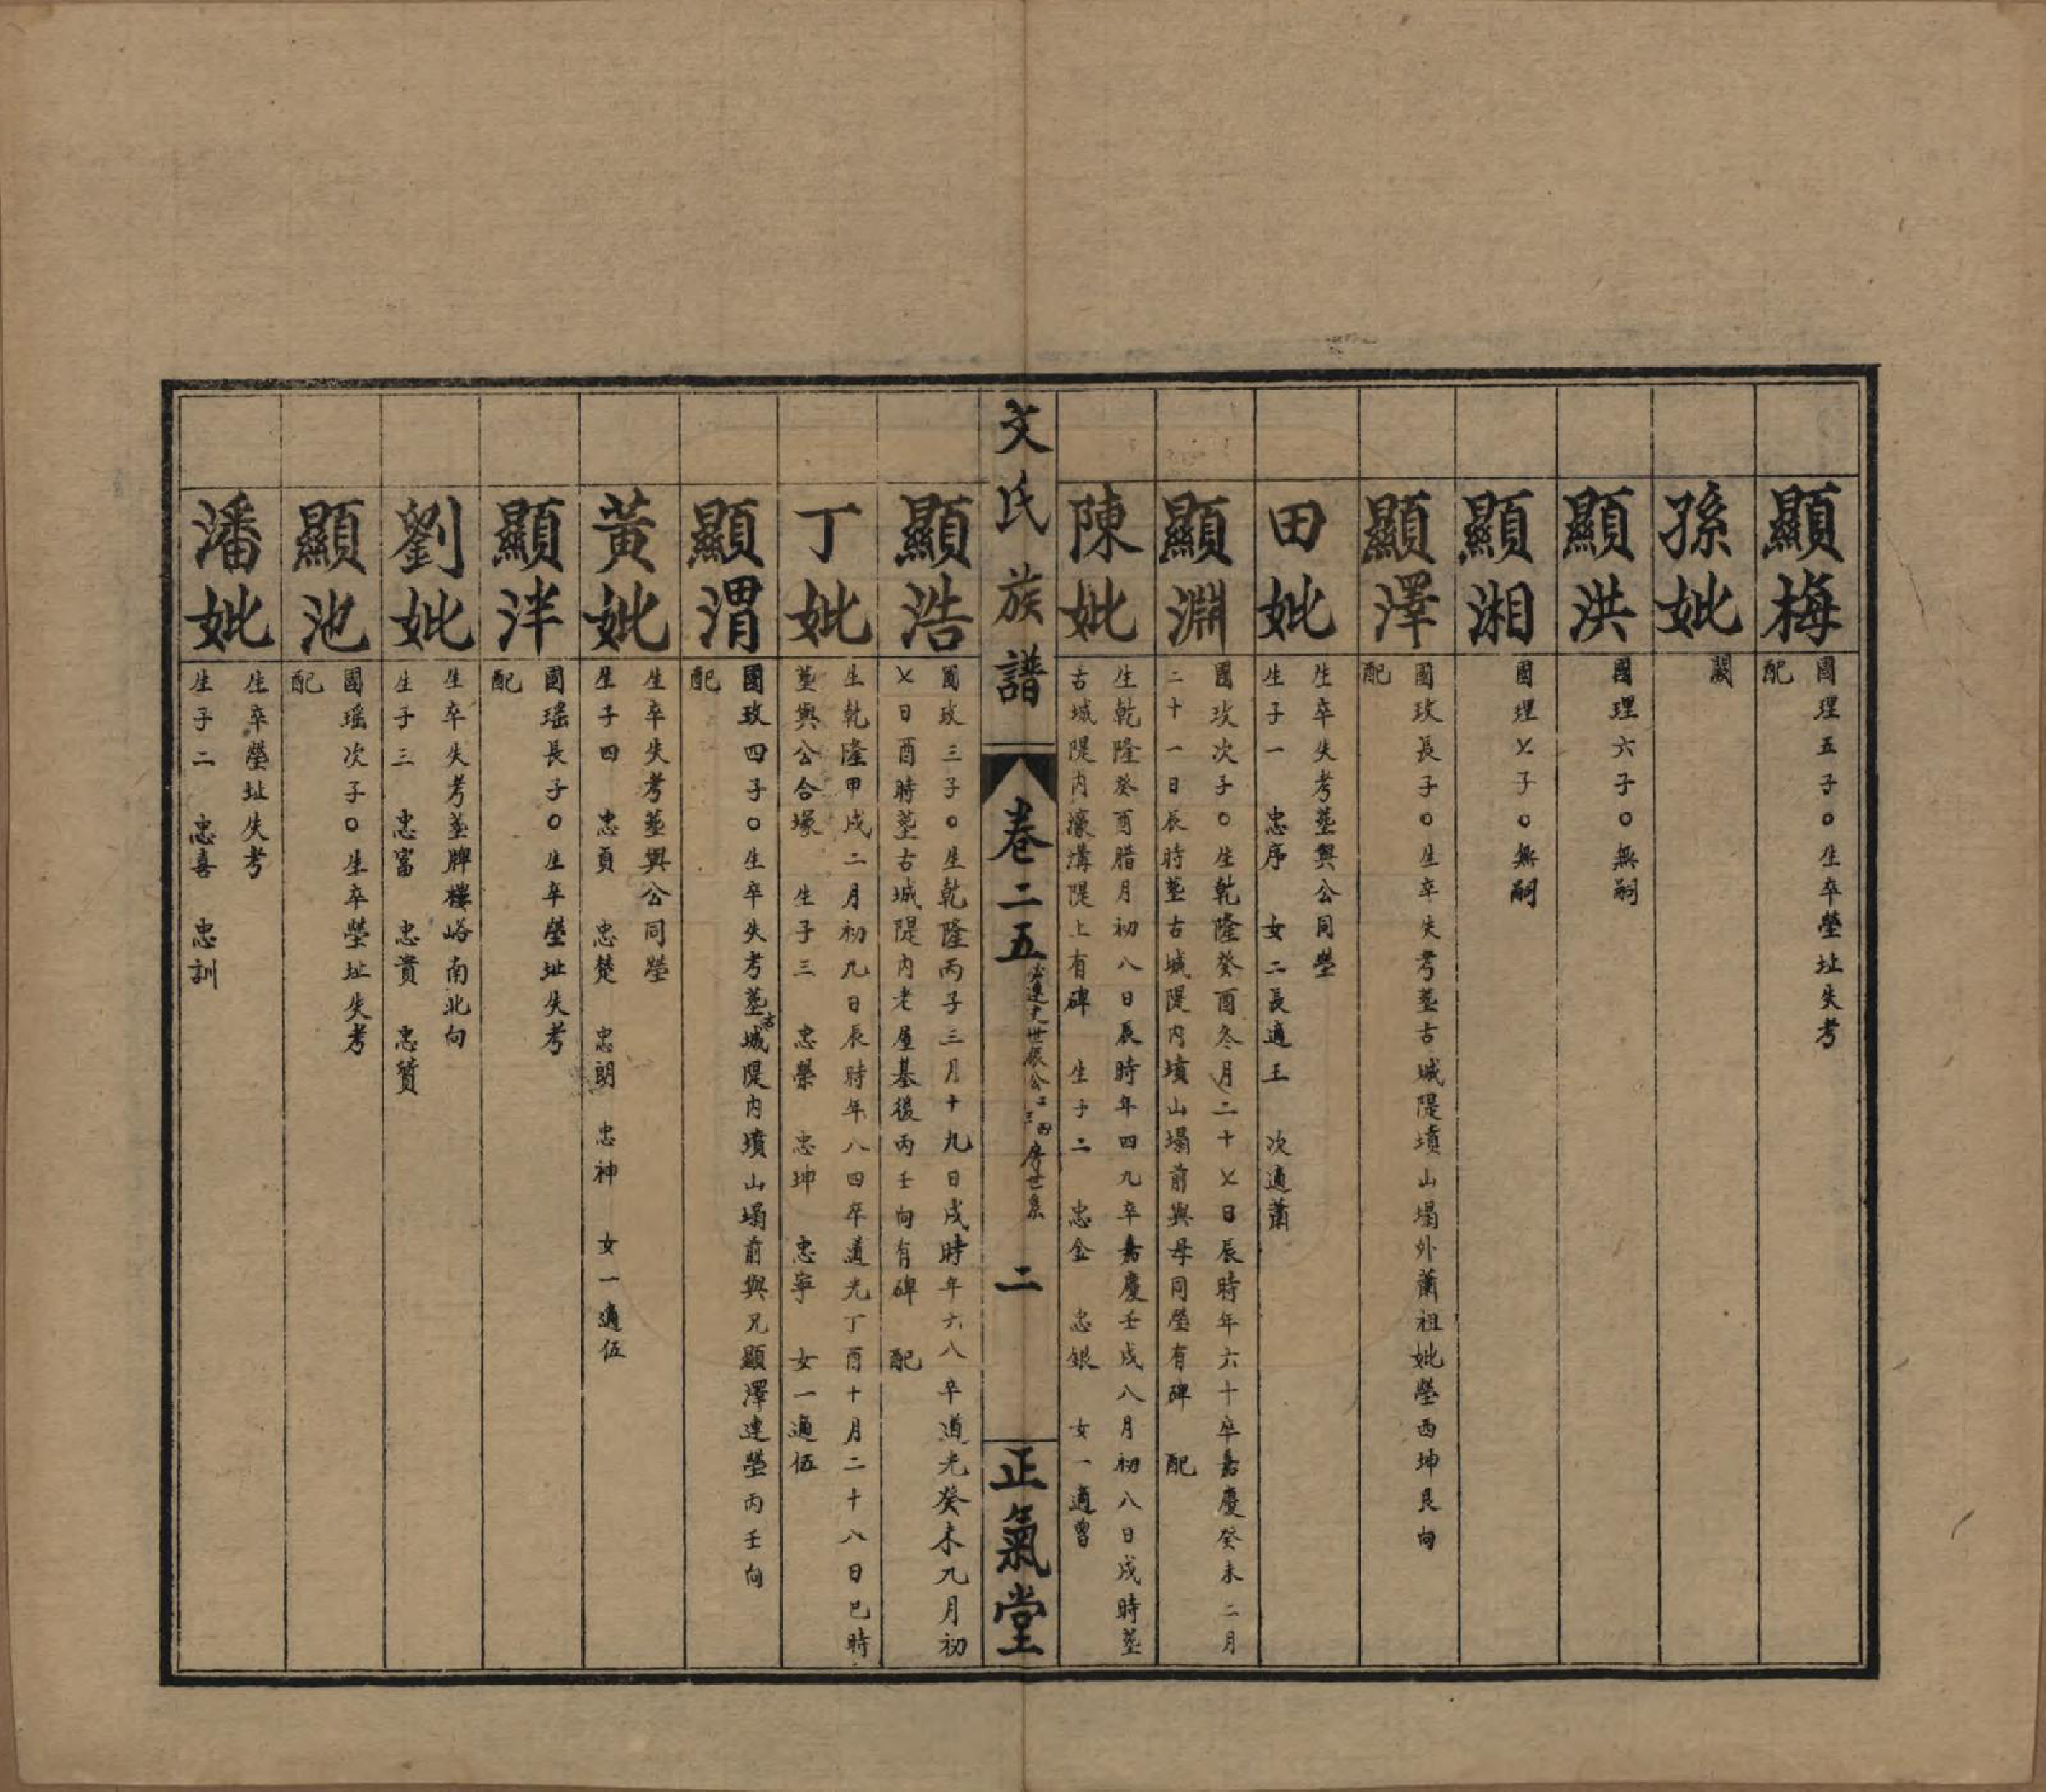 顯梅
國理五子○生卒塋址失考
配
孫妣
闕
顯洪
國理六子○無嗣
顯湘
國理乂子○無嗣
顯澤
國玫長子○生卒失考塟古城隄墳山塌外蕭祖妣塋西坤艮向
配
田妣
生卒失考塟與公同塋
生子一 忠序 女二長適王 次適蕭
顯淵
國玫次子○生乾隆癸酉冬月二十乂日辰時年六十卒嘉慶癸未二月
二十一日辰時塟古城隄內墳山塌前與母同塋有碑 配
陳妣
生乾隆癸酉腊月初八日辰時年四九卒嘉慶壬戌八月初八日戌時塟
古城隄內濠溝隄上有碑 生子二 忠金 忠銀 女一適曾
文氏族譜
卷二五
房世系
二
正氣堂
顯浩
國玫三子○生乾隆丙子三月十九日戌時年六八卒道光癸未九月初
乂日酉時塟古城隄內老屋基後丙壬向有碑 配
丁妣
生乾隆甲戌二月初九日辰時年八四卒道光丁酉十月二十八日巳時
塟與公合塚 生子三 忠榮 忠坤 忠寧 女一適伍
顯渭
國玫四子○生卒失考塟古城隄內墳山塌前與兄顯澤連塋丙壬向
配
黃妣
生卒失考塟與公同塋
生子四 忠貢 忠楚 忠朗 忠神 女一適伍
顯泮
國瑤長子○生卒塋址失考
配
劉妣
生卒失考塟牌樓峪南北向
生子三 忠富 忠貴 忠質
顯池
國瑤次子○生卒塋址失考
配
潘妣
生卒塋址失考
生子二 忠喜 忠訓